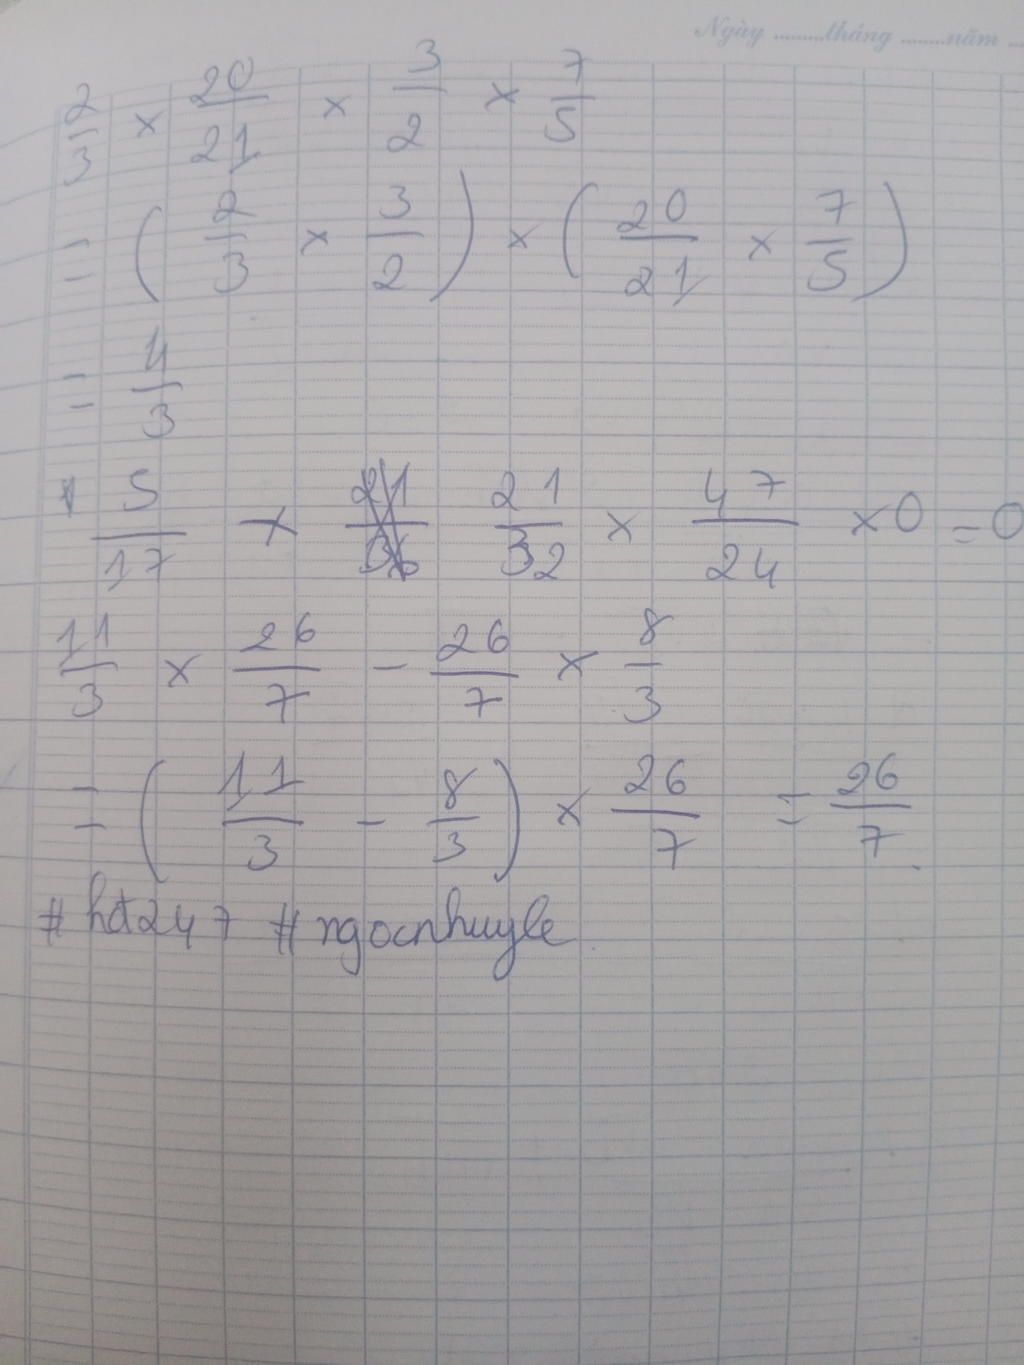 Ngày .........tháng ........năm ...
2/3 × 20/21 × 3/2 × 7/5
= (2/3 × 3/2) × (20/21 × 7/5)
= 4/3
5/17 × 21/32 × 47/24 × 0 = 0
11/3 × 26/7 - 26/7 × 8/3
= (11/3 - 8/3) × 26/7 = 26/7.
# hđ247 # ngocnhuyle